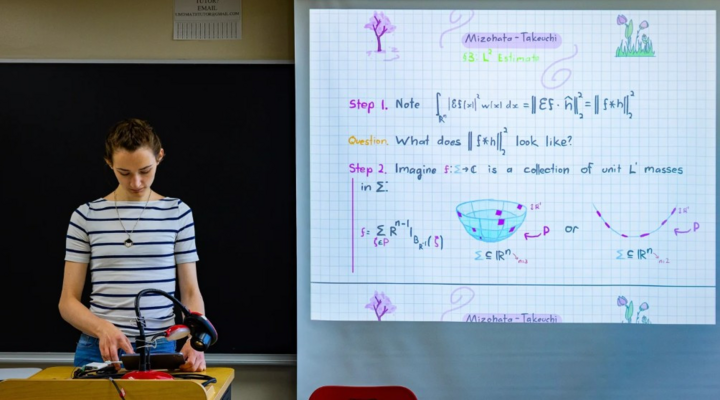 TUTOR
EMAIL
Mizohata-Takeuchi
§3: L² Estimate
Step 1. Note ∫_{ℝⁿ} |Ɛf(x)|² w(x) dx = ‖Ɛf · ĥ‖₂² = ‖f*h‖₂²
Question. What does ‖f*h‖₂² look like?
Step 2. Imagine f: Σ→ℂ is a collection of unit L¹ masses
in Σ:
f = Σ_{ξ∈P} R^{n-1} 1_{B_{R⁻¹}(ξ)}
I R⁻¹
P
Σ ⊆ ℝⁿ
or
I R⁻¹
P
Σ ⊆ ℝⁿ n=2
Mizohata-Takeuchi